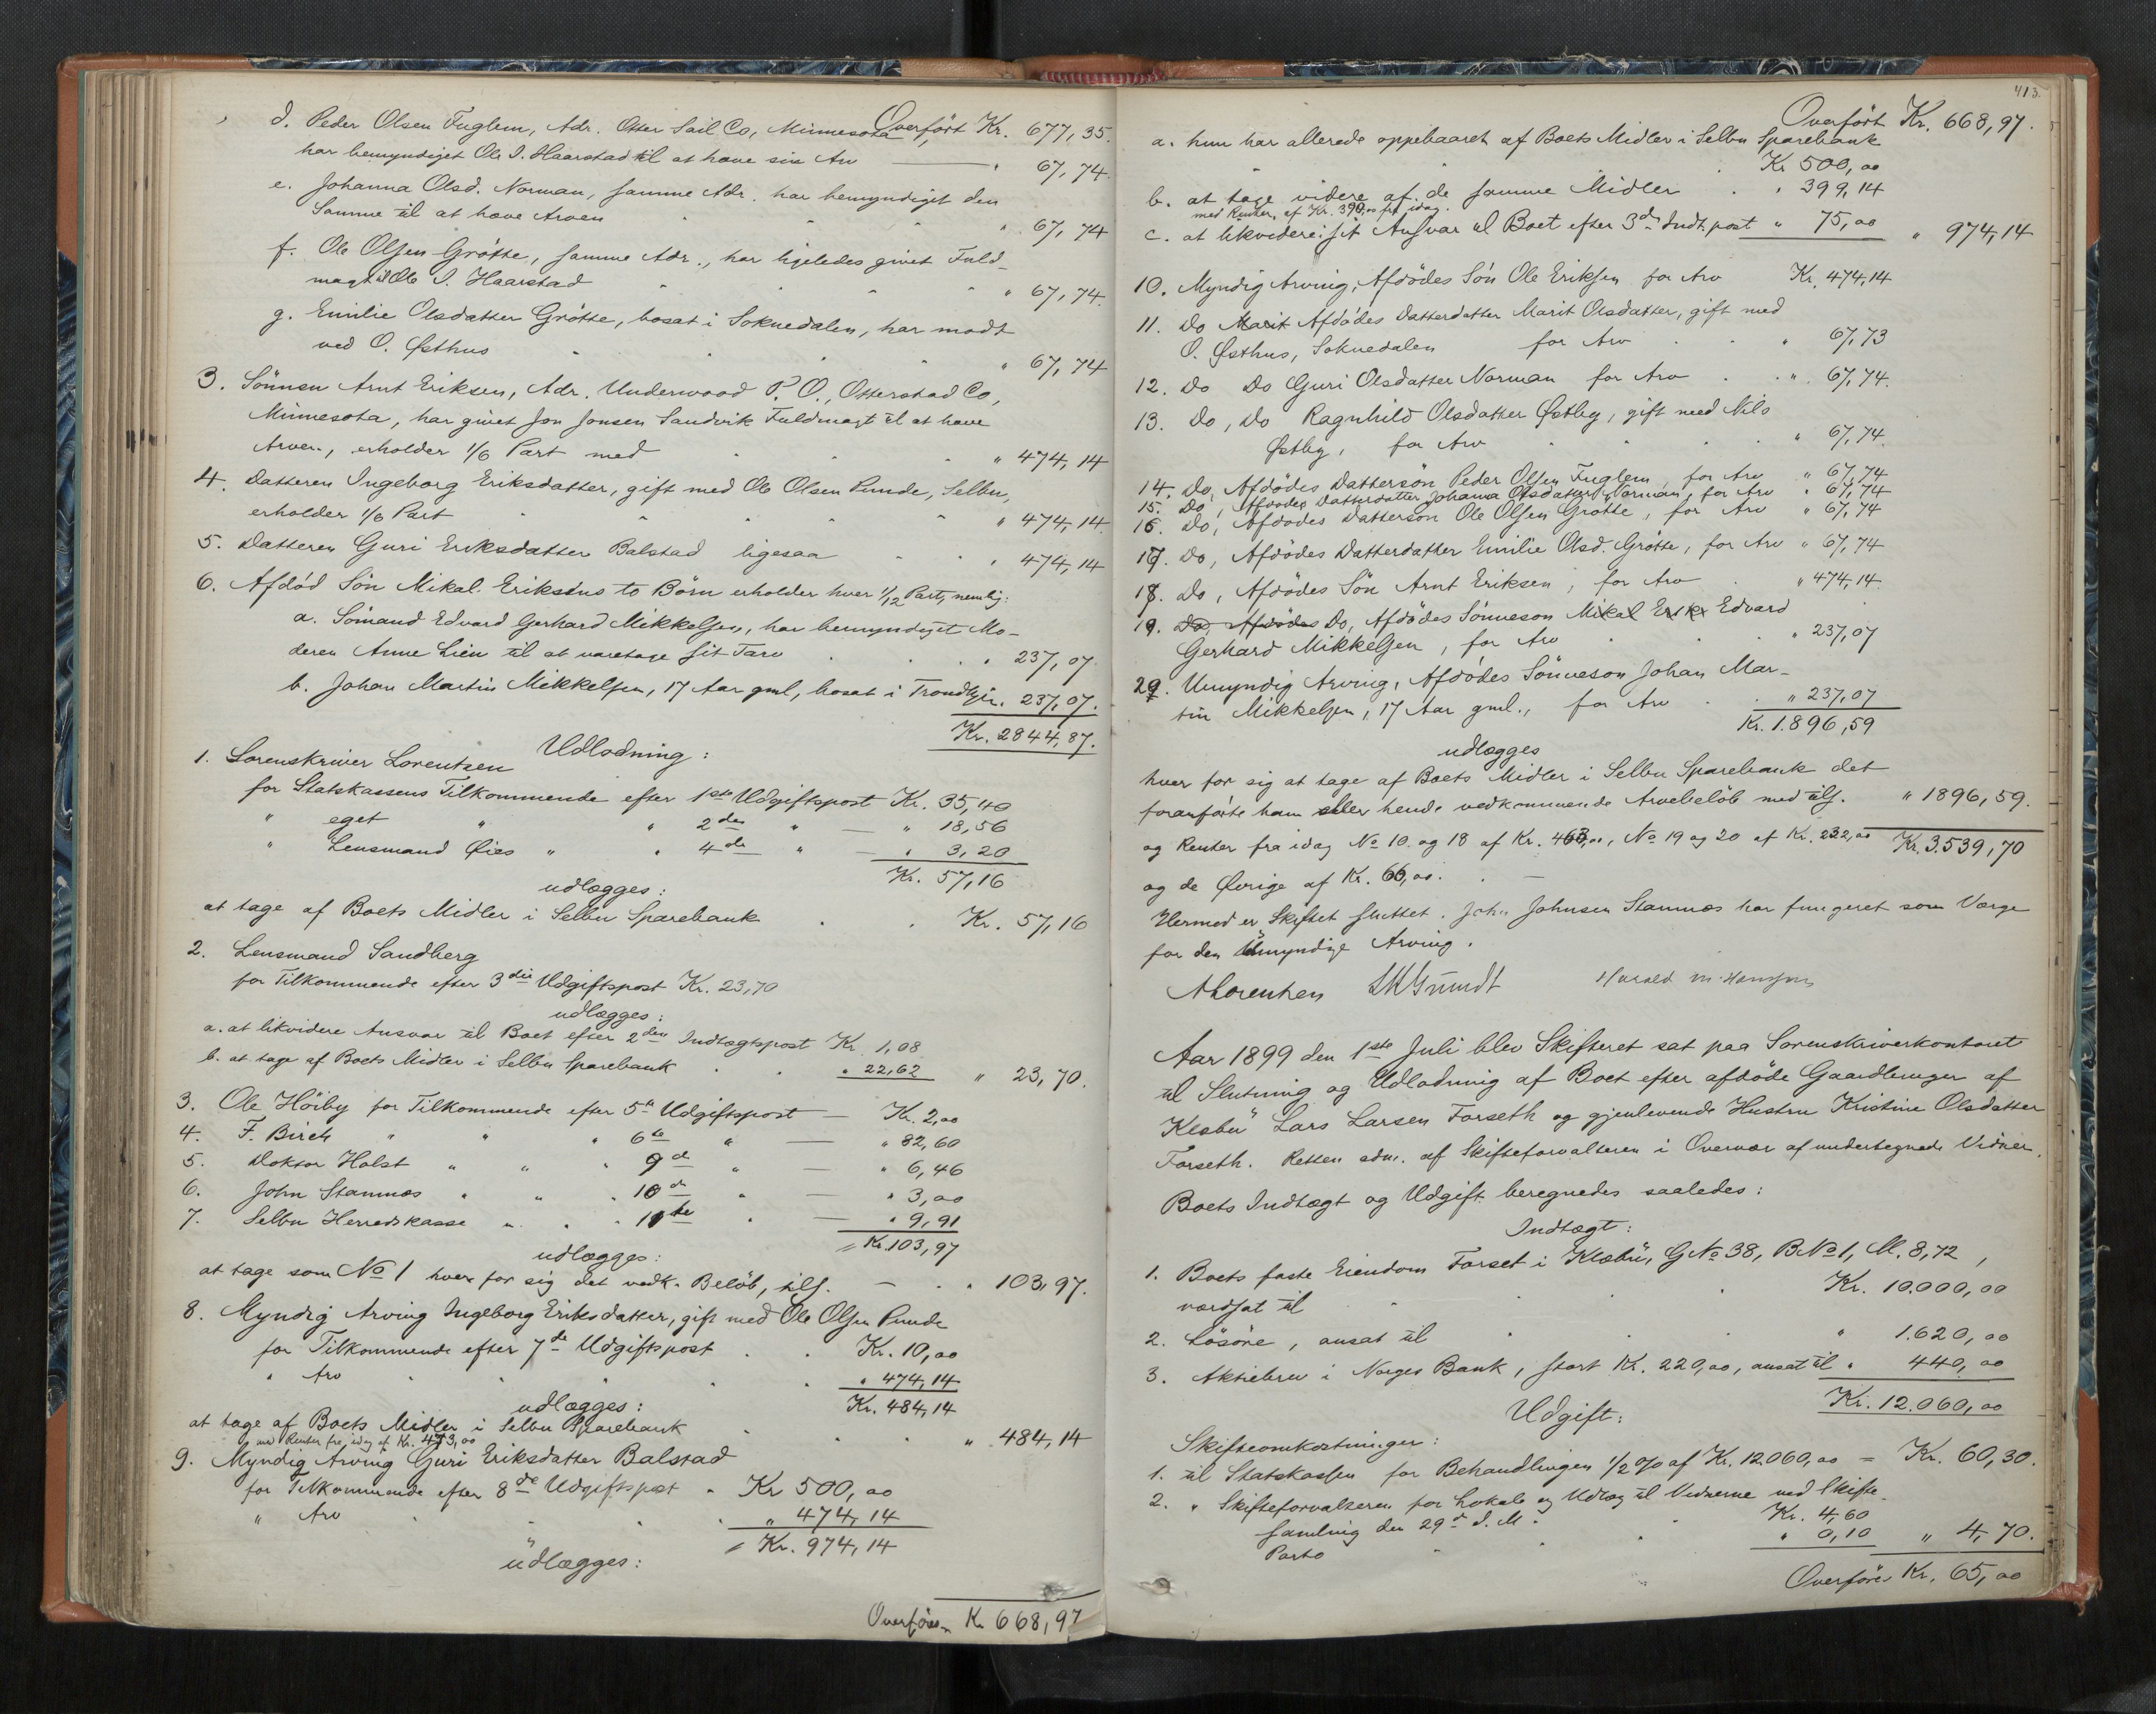 Overført Kr. 677,35.
d. Peder Olsen Fuglem, Adr. Otter Tail Co, Minnesota,
har bemyndiget Ole I. Haarstad til at hæve sin Arv — " 67,74.
e. Johanna Olsd. Norman, samme Adr. har bemyndiget den
Samme til at hæve Arven " " " 67,74
f. Ole Olsen Grøtte, samme Adr., har ligeledes givet Fuld-
magt til Ole I. Haarstad " " " 67,74.
g. Emilie Olsdatter Grøtte, bosat i Soknedalen, har mødt
ved O. Østhus " " " 67,74
3. Sønnen Arnt Eriksen, Adr. Underwood P.O., Otterstad Co,
Minnesota, har givet Jon Jonsen Sandvik Fuldmagt til at hæve
Arven, erholder 1/6 Part med " 474,14
4. Datteren Ingeborg Eriksdatter, gift med Ole Olsen Punde, Selbu,
erholder 1/6 Part " " " " 474,14.
5. Datteren Guri Eriksdatter Balstad ligesaa " " 474,14
6. Afdød Søn Mikal Eriksens to Børn erholder hver 1/12 Part, nemlig:
a. Sømand Edvard Gerhard Mikkelsen, har bemyndiget Mo-
deren Anne Lien til at varetage sit Tarv " 237,07.
b. Johan Martin Mikkelsen, 17 Aar gml, bosat i Trondhjem. 237,07.
Kr. 2844,87.
Udlodning:
1. Sorenskriver Lorentzen
for Statskassens Tilkommende efter 1ste Udgiftspost Kr. 35,40
" eget " " 2den " — " 18,56
" Lensmand Øies " " 4de " — " 3,20
Kr. 57,16
udlægges:
at tage af Boets Midler i Selbu Sparebank . . Kr. 57,16
2. Lensmand Sandberg
for Tilkommende efter 3die Udgiftspost Kr. 23,70
udlægges:
a. at likvidere Ansvar til Boet efter 2den Indtægtspost Kr. 1,08
b. at tage af Boets Midler i Selbu Sparebank . " 22,62 " 23,70.
3. Ole Hørby for Tilkommende efter 5te Udgiftspost — Kr. 2,00
4. F. Birch " " " 6te " — " 82,60
5. Doktor Holst " " " 9de " — " 6,46
6. John Stamnæs " " " 10de " — " 3,00
7. Selbu Herredskasse " " " 11te " — " 9,91
= Kr. 103,97
udlægges:
at tage som No 1 hver for sig det vedk. Beløb, tils. — . " 103,97.
8. Myndig Arving Ingeborg Eriksdatter, gift med Ole Olsen Punde
for Tilkommende efter 7de Udgiftspost . . Kr. 10,00
" Arv . . . . " 474,14
Kr. 484,14
udlægges:
at tage af Boets Midler i Selbu Sparebank . . . " 484,14
med Renter fra idag af Kr. 473,00
9. Myndig Arving Guri Eriksdatter Balstad
for Tilkommende efter 8de Udgiftspost " Kr 500,00
" Arv . . . " 474,14
= Kr. 974,14
udlægges:
Overføres Kr 668,97
413.
Overført Kr. 668,97.
a. hun har allerede oppebaaret af Boets Midler i Selbu Sparebank
Kr 500,00
b. at tage videre af de samme Midler . " 399,14
med Renter, af Kr. 390,00 fra idag.
c. at likvidere sit Ansvar til Boet efter 3die Indt.post " 75,00 " 974,14
10. Myndig Arving, Afdødes Søn Ole Eriksen for Arv Kr. 474,14
11. Do Marit Afdødes Datterdatter Marit Olsdatter, gift med
O. Østhus, Soknedalen for Arv . . " 67,73
12. Do Do Guri Olsdatter Norman for Arv . . " 67,74.
13. Do, Do Ragnhild Olsdatter Østby, gift med Nils
Østby, for Arv . . . " 67,74.
14. Do, Afdødes Dattersøn Peder Olsen Fuglem, for Arv " 67,74
15. Do, Afdødes Datterdatter Johanna Olsdatter Norman, for Arv " 67,74
16. Do, Afdødes Dattersøn Ole Olsen Grøtte, for Arv " 67,74
17. Do, Afdødes Datterdatter Emilie Olsd. Grøtte, for Arv " 67,74
18. Do, Afdødes Søn Arnt Eriksen, for Arv . " 474,14.
19. Do, Afdødes Do, Afdødes Sønneson Mikal Erik Edvard
Gerhard Mikkelsen, for Arv . . " 237,07
20. Umyndig Arving, Afdødes Sønneson Johan Mar-
tin Mikkelsen, 17 Aar gml., for Arv . " 237,07
Kr. 1.896,59
udlægges
hver for sig at tage af Boets Midler i Selbu Sparebank det
foranførte ham eller hende vedkommende Arvebeløb med tils. " 1896,59.
og Renter fra idag No 10 og 18 af Kr. 468,00, No 19 og 20 af Kr. 232,00 Kr. 3.539,70
og de Øvrige af Kr. 66,00. . —
Hermed er Skiftet sluttet. John Johnsen Stamnæs har fungeret som Værge
for den Umyndige Arving.
ALorentzen Harald M. Hansen
Aar 1899 den 1ste Juli blev Skifteret sat paa Sorenskriverkontoret
til Slutning og Udlodning af Boet efter afdøde Gaardbruger af
Klæbu Lars Larsen Forseth og gjenlevende Hustru Kristine Olsdatter
Forseth. Retten adm. af Skifteforvalteren i Overvær af undertegnede Vidner.
Boets Indtægt og Udgift beregnedes saaledes:
Indtægt:
1. Boets faste Eiendom Forset i Klæbu, GNo 38, BNo 1, M. 8,72,
værdsat til . . . . Kr. 10.000,00
2. Løsøre, ansat til . . . " 1.620,00
3. Aktiebrev i Norges Bank, stort Kr. 220,00, ansat til " 440,00
Kr. 12.060,00
Udgift:
Skifteomkostninger:
1. til Statskassen for Behandlingen 1/2 % af Kr. 12.060,00 = Kr. 60,30.
2. " Skifteforvalteren for Lokale og Udlæg til Vidnerne ved Skifte-
samling den 29de d. M. . . Kr. 4,60
Porto . . . " 0,10 " 4,70.
Overføres Kr. 65,00